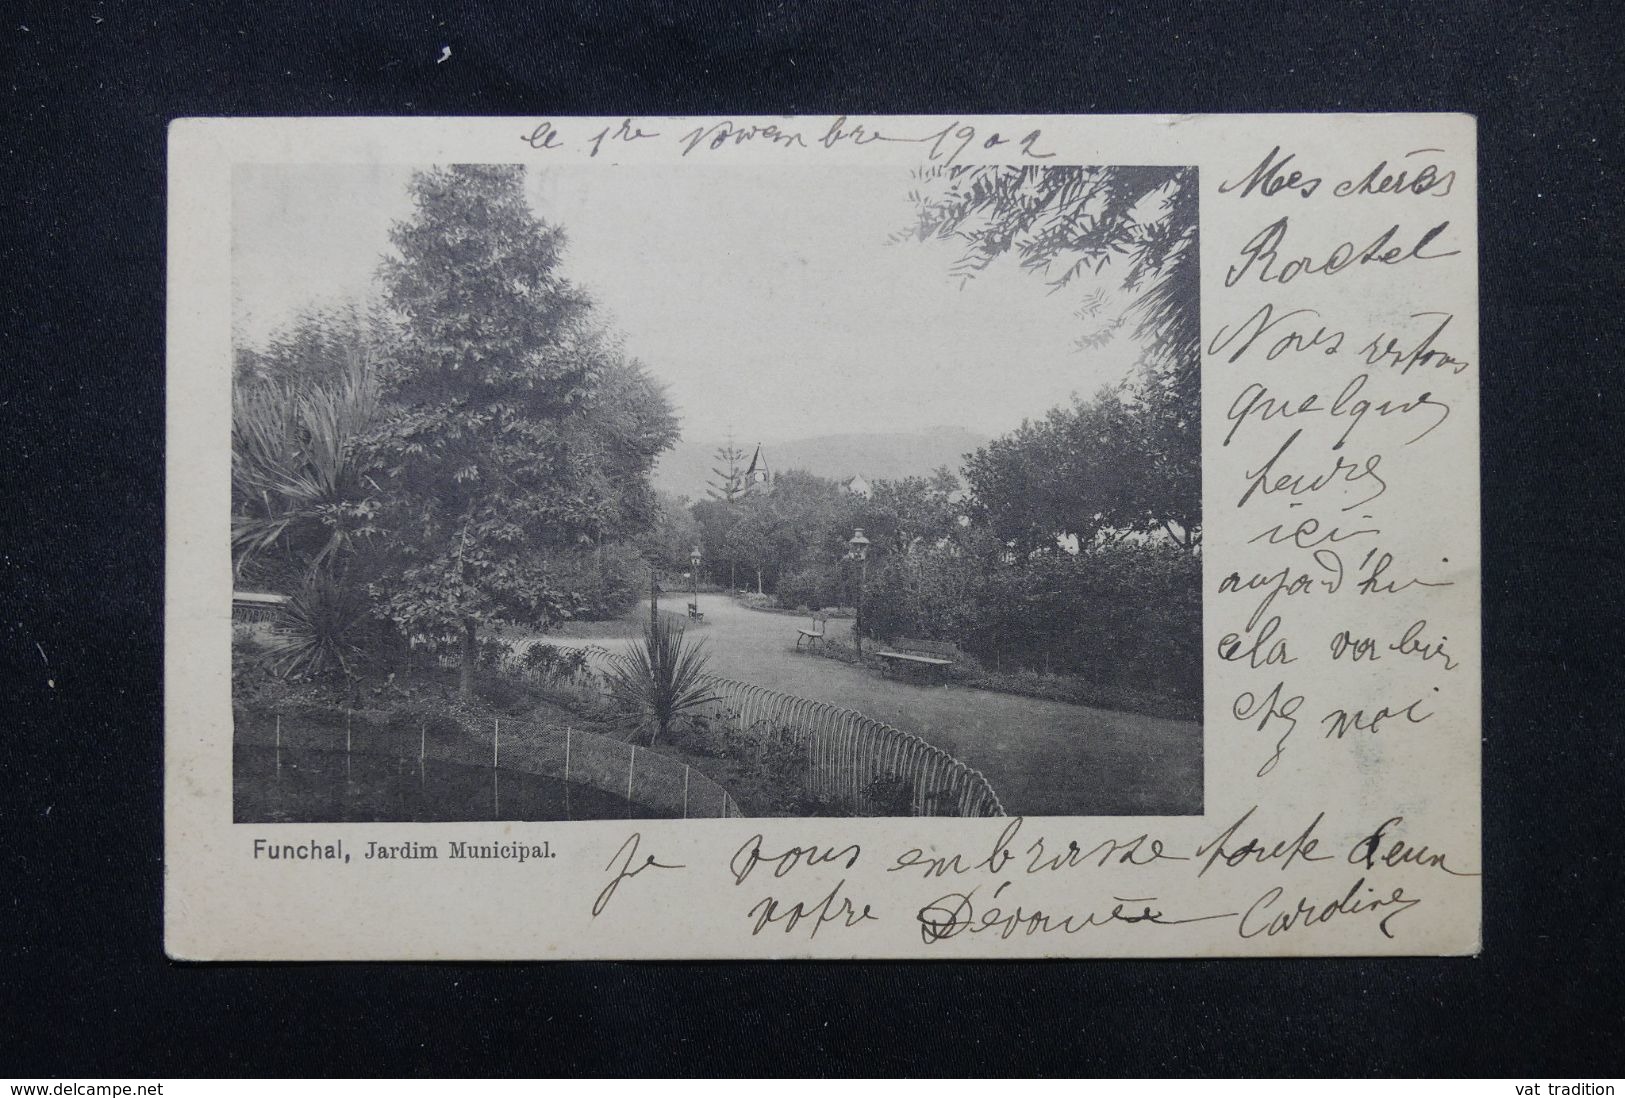 le 1re Novembre 1902
Mes chères
Rachel
Nous restons
quelques
heures
ici
aujord'hui
cela va bien
chez moi
Funchal, Jardim Municipal.
je vous embrasse toute deux
votre Dévouée Caroline
www.delcampe.net
vat tradition